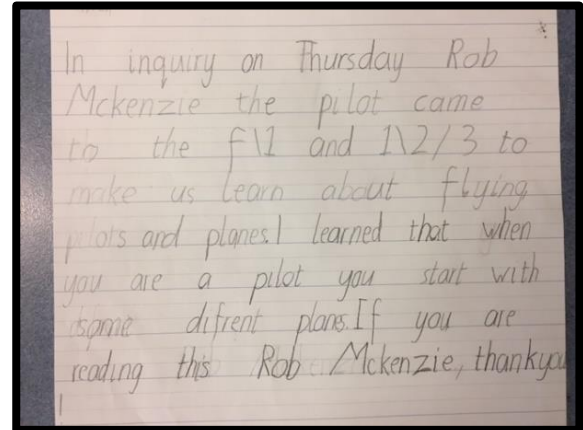 In inquiry on Thursday Rob
Mckenzie the pilot came
to the f\1 and 1\2/3 to
make us learn about flying
pilots and planes.I learned that when
you are a pilot you start with
some difrent plans.If you are
reading this Rob Mckenzie, thankyou